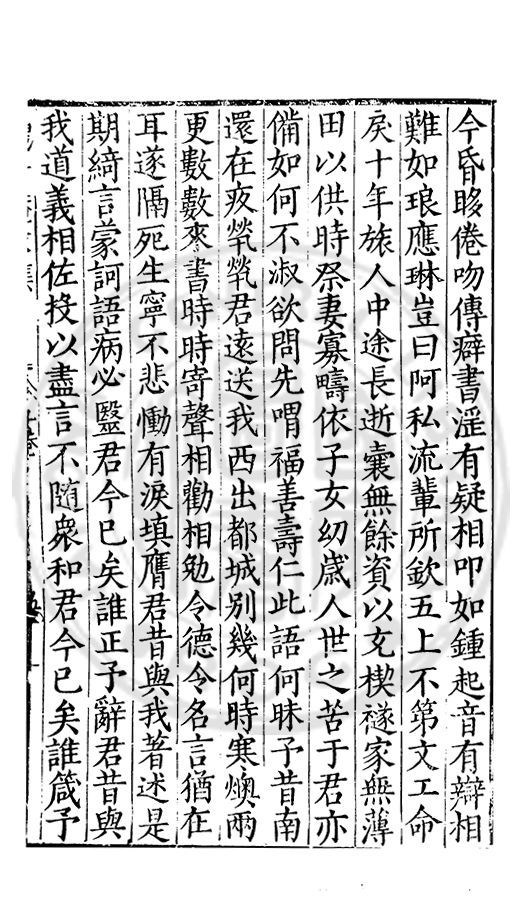 今昏眵倦吻傳癖書滛有疑相叩如鍾起音有辯相
難如琅應琳豈曰阿私流輩所欽五上不第文工命
戾十年旅人中途長逝囊無餘資以充楔襚家無薄
田以供時祭妻寡疇依子女幼歲人世之苦于君亦
備如何不淑欲問先喟福善壽仁此語何昧予昔南
還在疚煢煢君遠送我西出都城別幾何時寒燠兩
更數數來書時時寄聲相勸相勉令德令名言猶在
耳遂隔死生寧不悲慟有淚填膺君昔與我著述是
期綺言蒙訶語病必毉君今已矣誰正予辭君昔與
我道義相佐投以盡言不随衆和君今已矣誰箴予